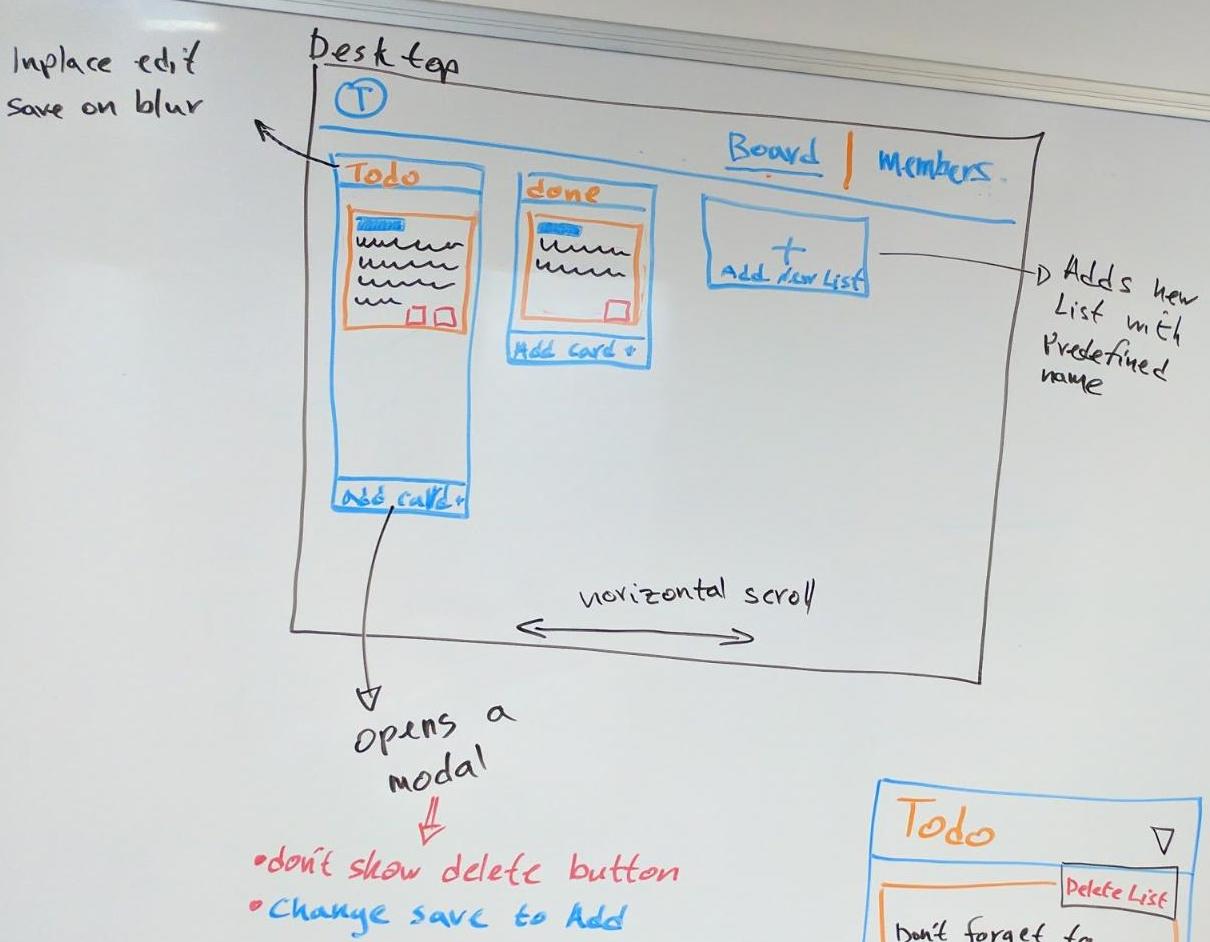 Inplace edit
save on blur
Desktop
T
Board | Members
Todo
done
Add card +
Add card +
+
Add New List
Adds new
List with
Predefined
name
horizontal scroll
opens a
modal
•don't show delete button
•Change save to Add
Todo
Delete List
Don't forget to